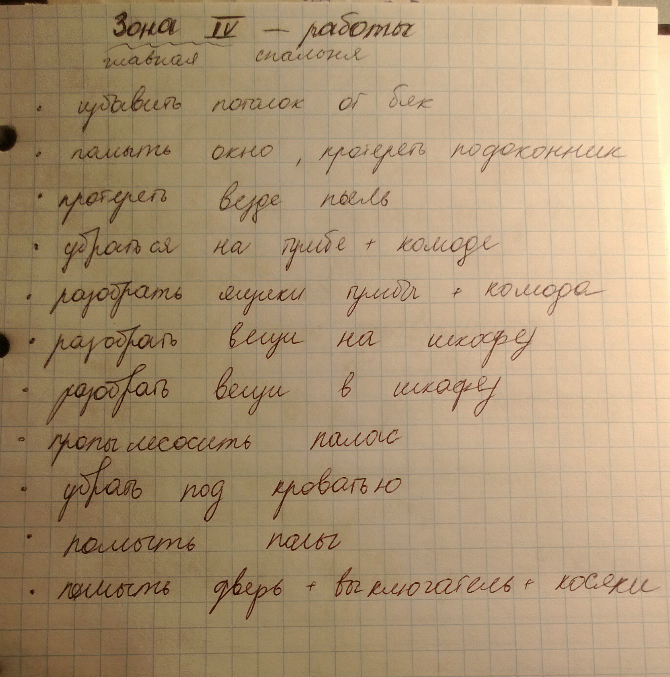 Зона IV — работы
главная спальня
• избавить потолок от бяк
• помыть окно, протереть подоконник
• протереть везде пыль
• убраться на тумбе + комоде
• разобрать ящики тумбы + комода
• разобрать вещи на шкафу
• разобрать вещи в шкафу
• пропылесосить палас
• убрать под кроватью
• помыть полы
• помыть дверь + выключатель + косяки